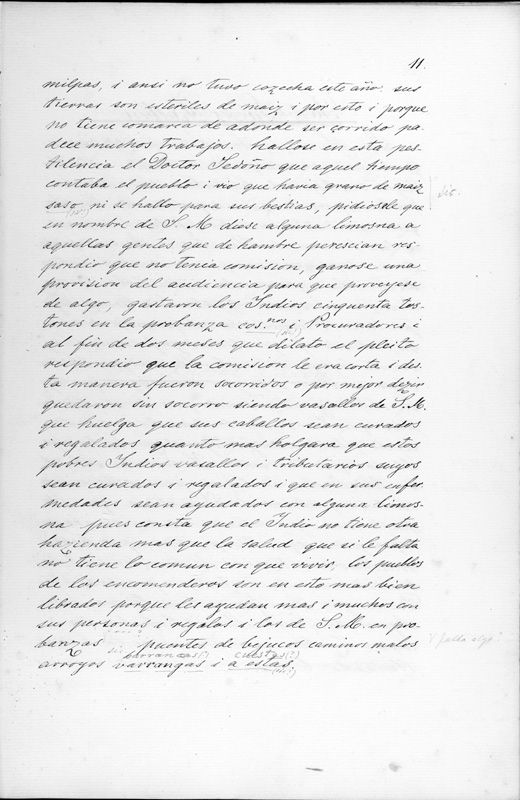 11.
milpas, i ansi no tuvo cozecha este año. sus
tierras son esteriles de maiz i por esto i porque
no tiene comarca de adonde ser corrido pa-
dece muchos trabajos. hallose en esta pes-
tilencia el Doctor Sedeño que aquel tiempo
contaba el pueblo i vio que havia grano de maiz
saso ni se hallo para sus bestias, pidiosele que sic.
en nombre de S. M diose alguna limosna a
aquellas gentes que de hambre perescian res-
pondio que no tenia comision, ganose una
provision del audiencia para que proveyese
de algo, gastaron los Indios cinquenta tos-
tones en la probanza cos.nos i Procuradores i
al fin de dos meses que dilato el pleito
respondio que la comision le era corta i des-
ta manera fueron socorridos o por mejor dezir
quedaron sin socorro siendo vasallos de S. M.
que huelga que sus caballos sean curados
i regalados quanto mas holgara que estos
pobres Indios vasallos i tributarios suyos
sean curados i regalados i que en sus enfer
medades sean ayudados con alguna limos-
na pues consta que el Indio no tiene otra
hazienda mas que la salud que si le falta
no tiene lo comun con que vivir. los pueblos
de los encomenderos son en esto mas bien
librados porque les ayudan mas i muchos con
sus personas i regalos i los de S. M. en pro-
banzas puentes de bejucos caminos malos falta algo
barrancas(?) cuestas(?)
arroyos varrangas i a estas.